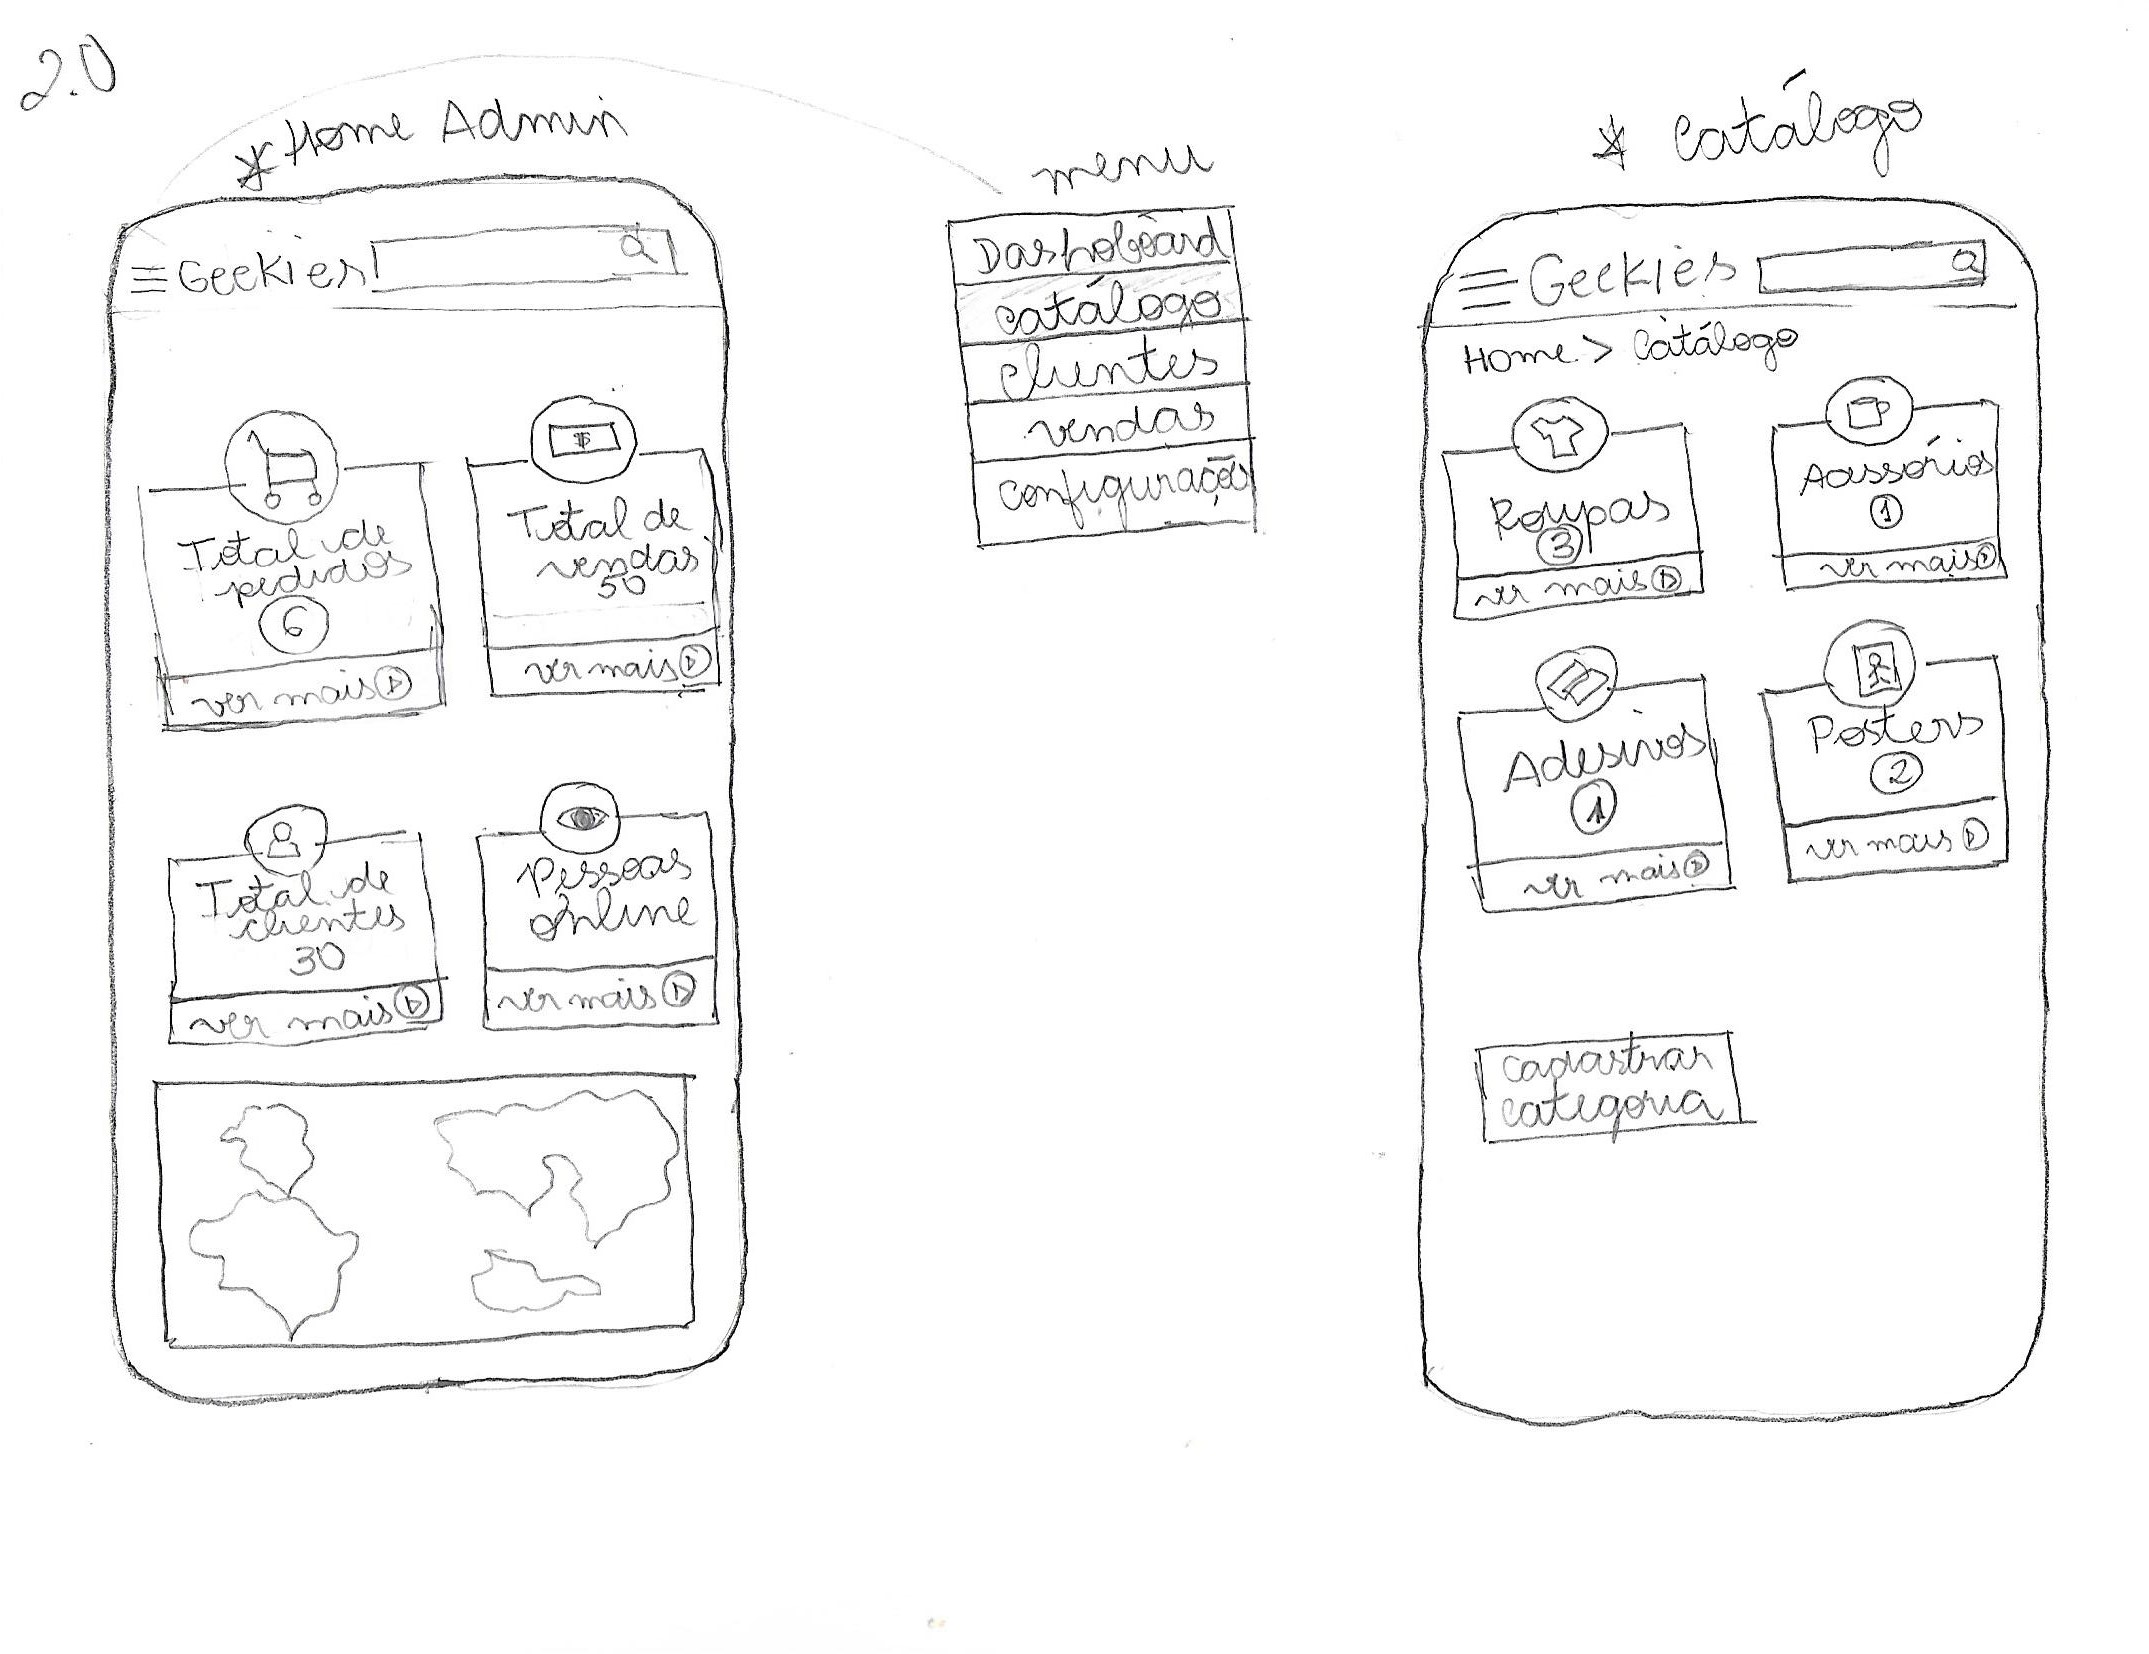 2.0
* Home Admin
Geekies
Total de
pedidos
6
ver mais
Total de
vendas
50
ver mais
Total de
clientes
30
ver mais
Pessoas
online
ver mais
menu
Dashoboard
catálogo
clientes
vendas
configuração
* Catálogo
Geekies
Home > Catálogo
Roupas
3
ver mais
Acessórios
1
ver mais
Adesivos
1
ver mais
Posters
2
ver mais
cadastrar
categoria